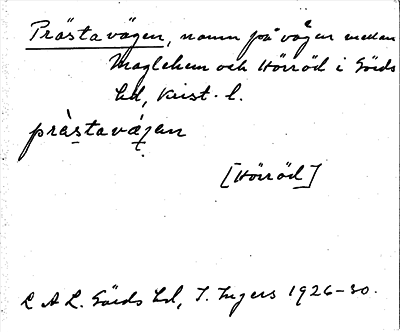 Prästavägen, namn på vägen mellan
Maglehem och Hörröd i Gärds
hd, Krist. l.
prästavägen
[Hörröd]
L A L. Gärds hd, I. Ingers 1926-30.